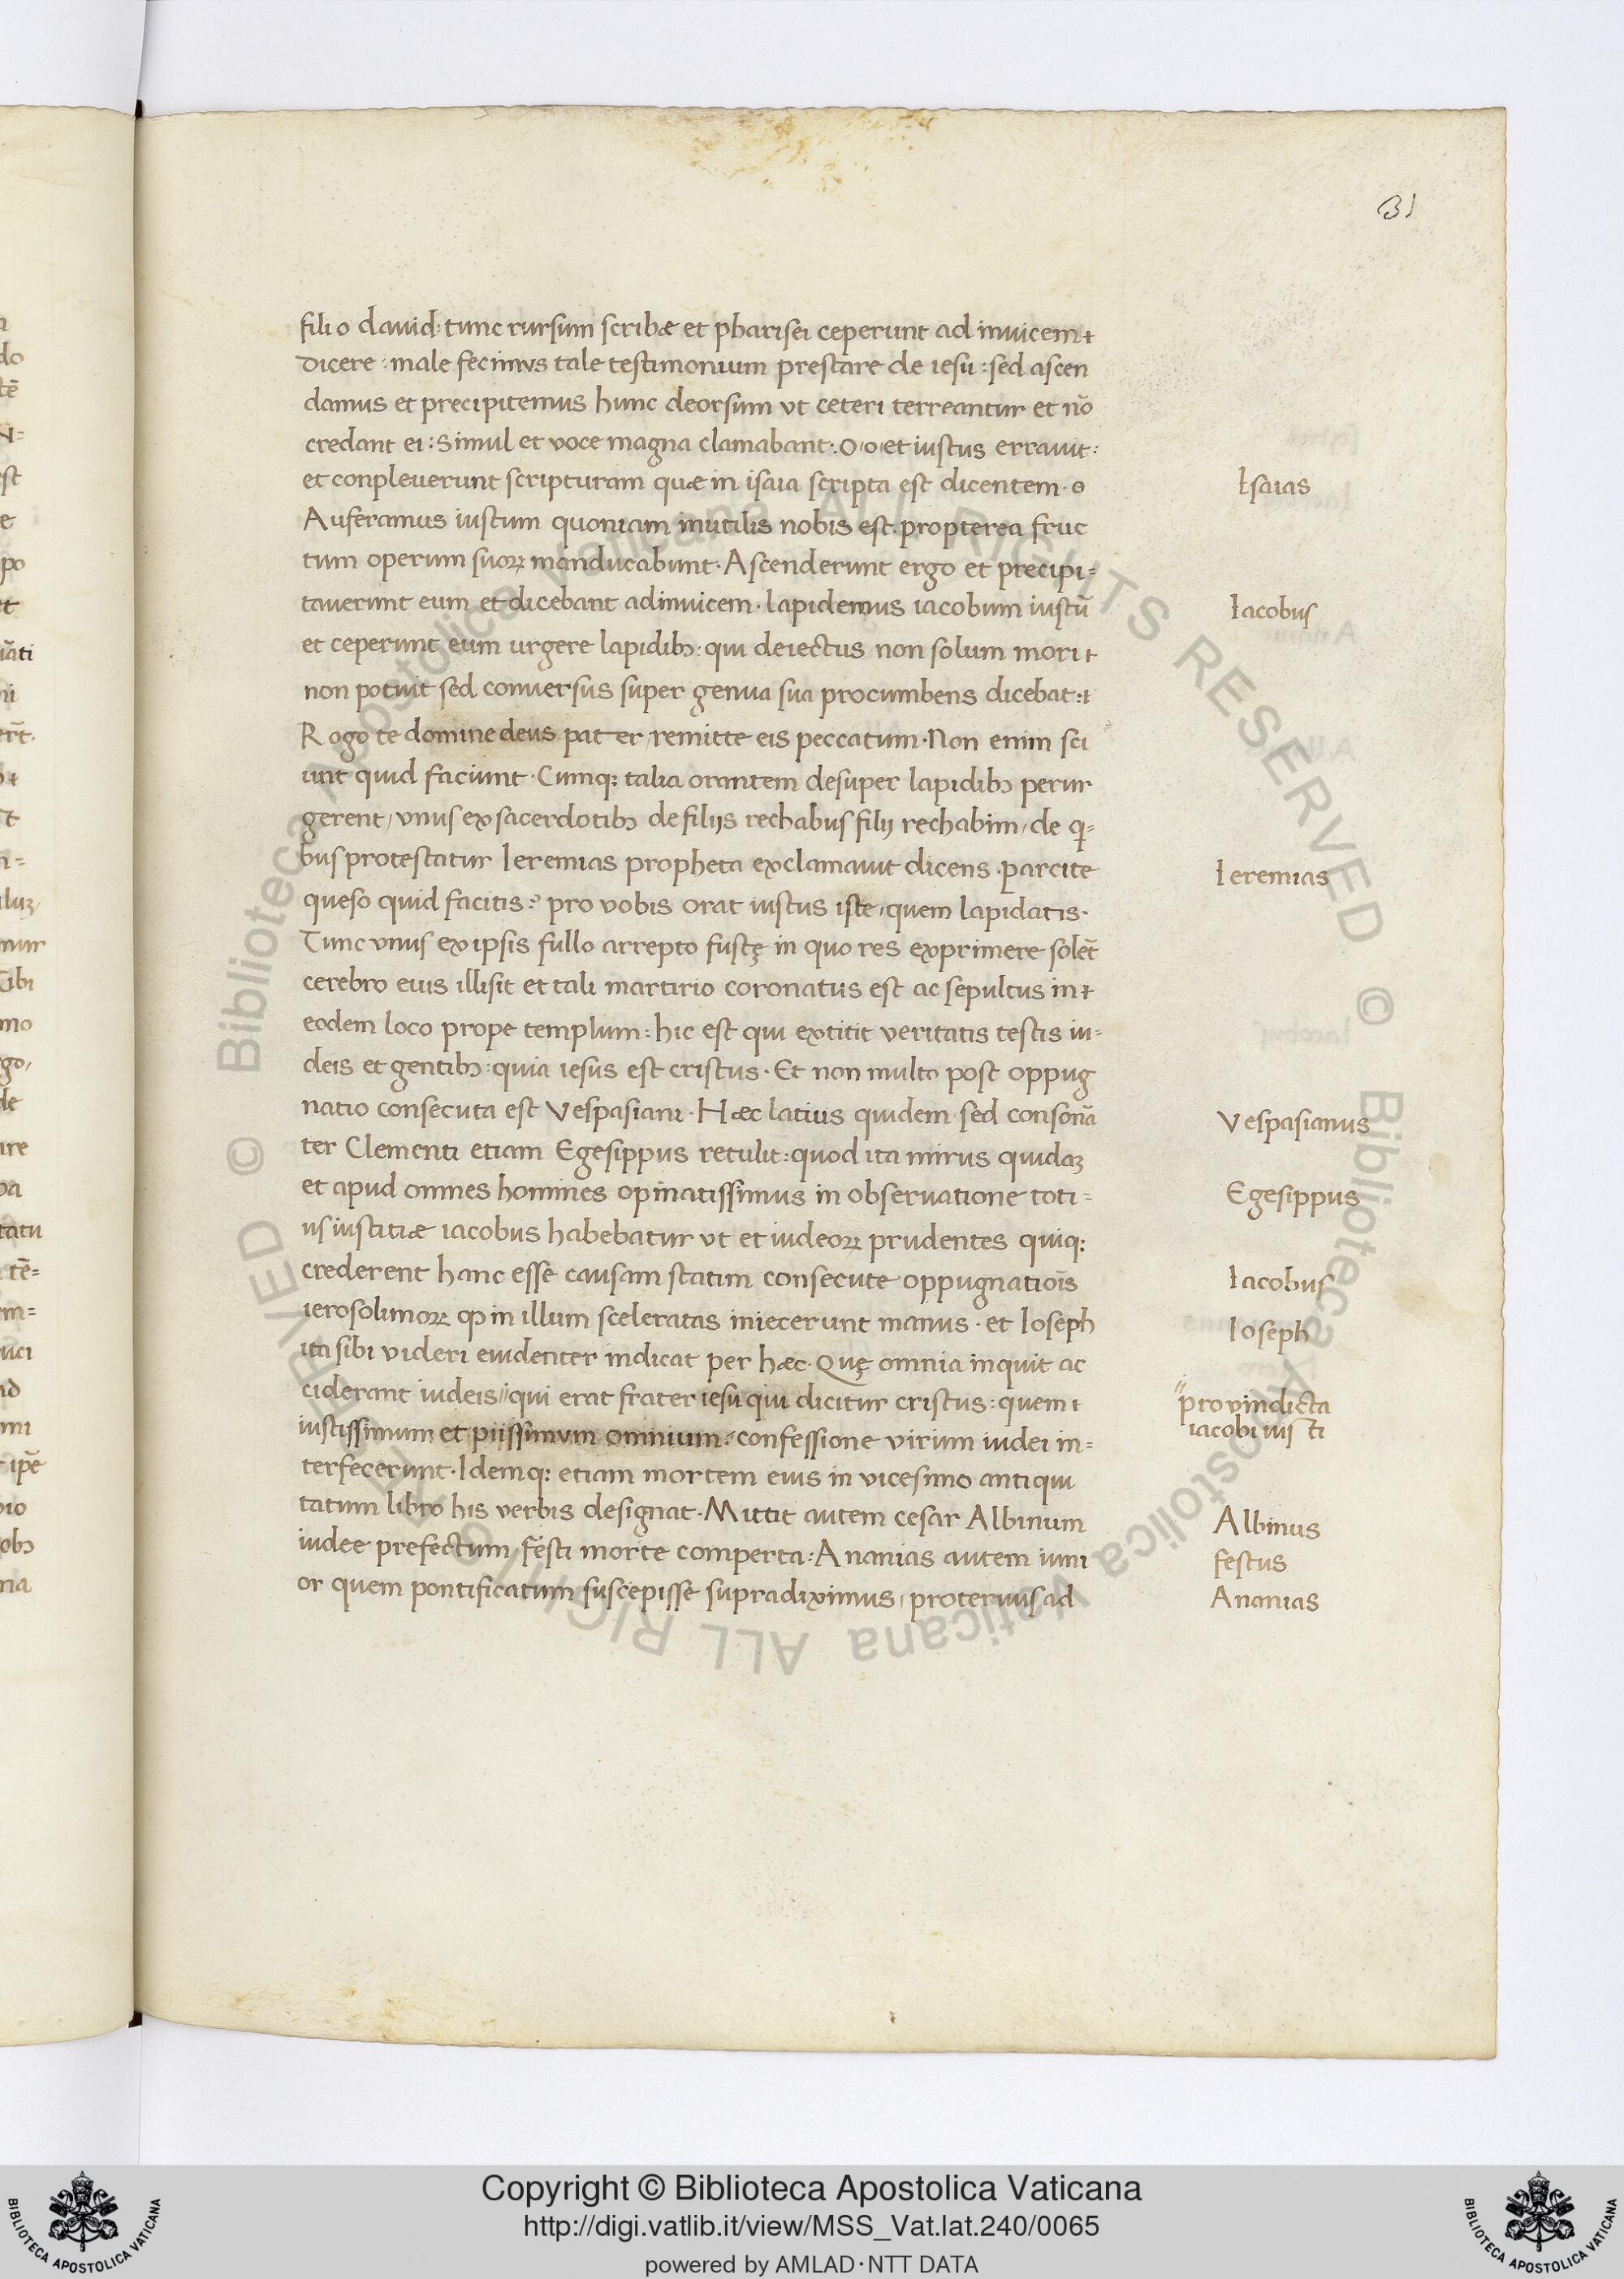 31
filio dauid: tunc rursum scribæ et pharisei ceperunt ad inuicem
dicere: male fecimus tale testimonium prestare de iesu: sed ascen
damus et precipitemus hunc deorsum vt ceteri terreantur et nō
credant ei: Simul et voce magna clamabant: O/o/et iustus errauit:
et conpleuerunt scripturam quæ in isaia scripta est dicentem· o
Isaias
Auferamus iustum quoniam inutilis nobis est: propterea fruc
tum operum suoꝝ manducabunt· Ascenderunt ergo et precipi=
tauerunt eum et dicebant adinuicem· lapidemus iacobum iustū
Iacobus
et ceperunt eum urgere lapidibꝫ: qui deiectus non solum mori
non potuit sed conuersus super genua sua procumbens dicebat:
Rogo te domine deus pater/ remitte eis peccatum· Non enim sci
unt quid faciunt· Cumqꝫ talia orantem desuper lapidibꝫ perur
gerent/ vnus ex sacerdotibꝫ de filijs rechabus filij rechabim/ de q=
bus protestatur Ieremias propheta exclamauit dicens· parcite
Ieremias
queso quid facitis? pro vobis orat iustus iste/ quem lapidatis·
Tunc vnus ex ipsis fullo arrepto fustę in quo res exprimere solēt
cerebro eius illisit et tali martirio coronatus est ac sepultus in
eodem loco prope templum: hic est qui extitit veritatis testis iu=
deis et gentibꝫ: quia iesus est cristus· Et non multo post oppug
natio consecuta est Vespasiani· Hæc latius quidem sed consonā
Vespasianus
ter Clementi etiam Egesippus retulit: quod ita mirus quidaꝫ
et apud omnes homines opinatissimus in obseruatione toti=
Egesippus
us iustitiæ iacobus habebatur vt et iudeoꝝ prudentes quiqꝫ
crederent hanc esse causam statim consecute oppugnatiōis
Iacobus
ierosolimoꝝ ꝙ in illum sceleratas iniecerunt manus· et Ioseph
Ioseph
ita sibi videri euidenter indicat per hæc· Quę omnia inquit ac
ciderant iudeis// qui erat frater iesu qui dicitur cristus: quem
//pro vindicta
iacobi iusti
iustissimum et piissimum omnium: confessione virum iudei in=
terfecerunt· Idemqꝫ etiam mortem eius in vicesimo antiqui
tatum libro his verbis designat· Mittit autem cesar Albinum
Albinus
iudee prefectum/ festi morte comperta: Ananias autem iuni
festus
or quem pontificatum suscepisse supradiximus/ proteruus ad
Ananias
Copyright © Biblioteca Apostolica Vaticana
http://digi.vatlib.it/view/MSS_Vat.lat.240/0065
powered by AMLAD·NTT DATA
BIBLIOTECA APOSTOLICA VATICANA
BIBLIOTECA APOSTOLICA VATICANA
© Biblioteca Apostolica Vaticana ALL RIGHTS RESERVED © Biblioteca Apostolica Vaticana ALL RIGHTS RESERVED